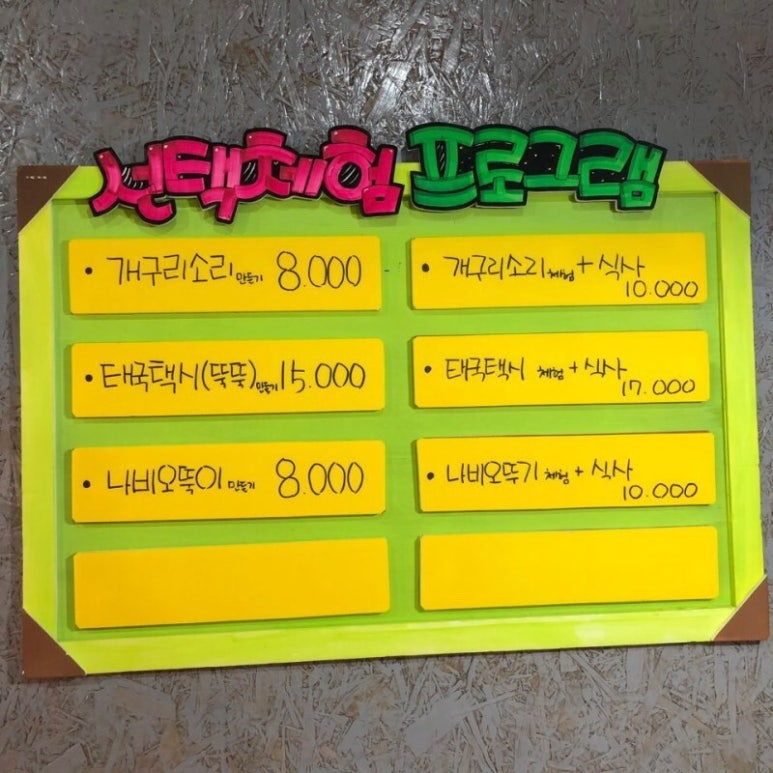 선택체험 프로그램
• 개구리소리 만들기 8.000
• 태국택시(뚝뚝)만들기 15.000
• 나비오뚝이 만들기 8.000
• 개구리소리 체험 + 식사
10.000
• 태국택시 체험 + 식사
17.000
• 나비오뚜기 체험 + 식사
10.000